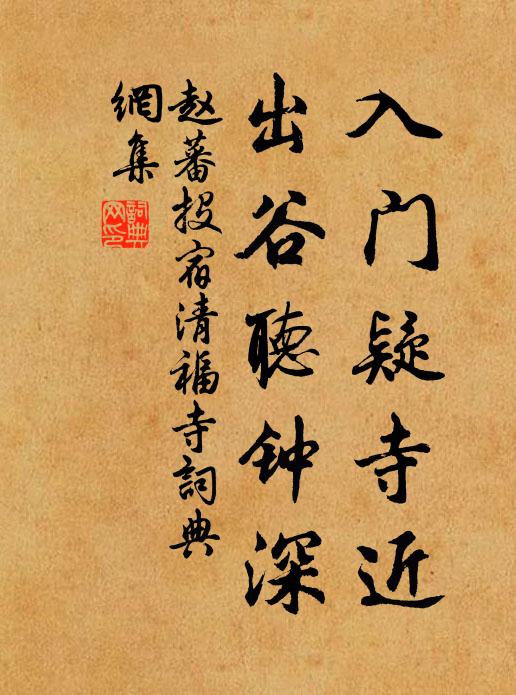 入门疑寺近
出谷聽钟深
赵蕃投宿清福寺詞典
網集
詞典
网印